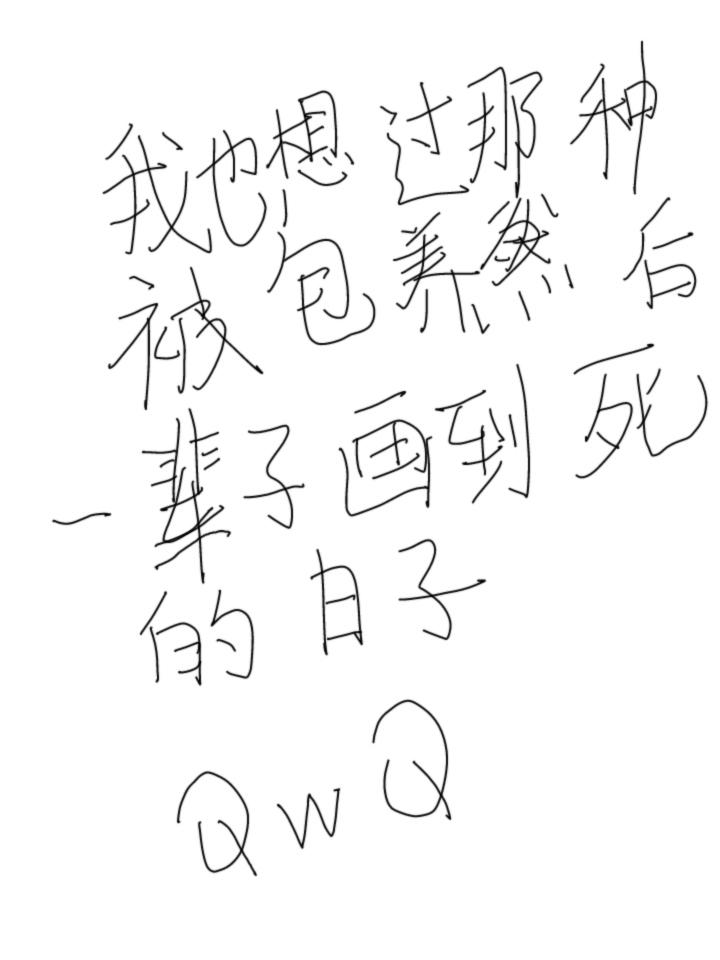 我也想过那种
被包养然后
一辈子画到死
的日子
QwQ